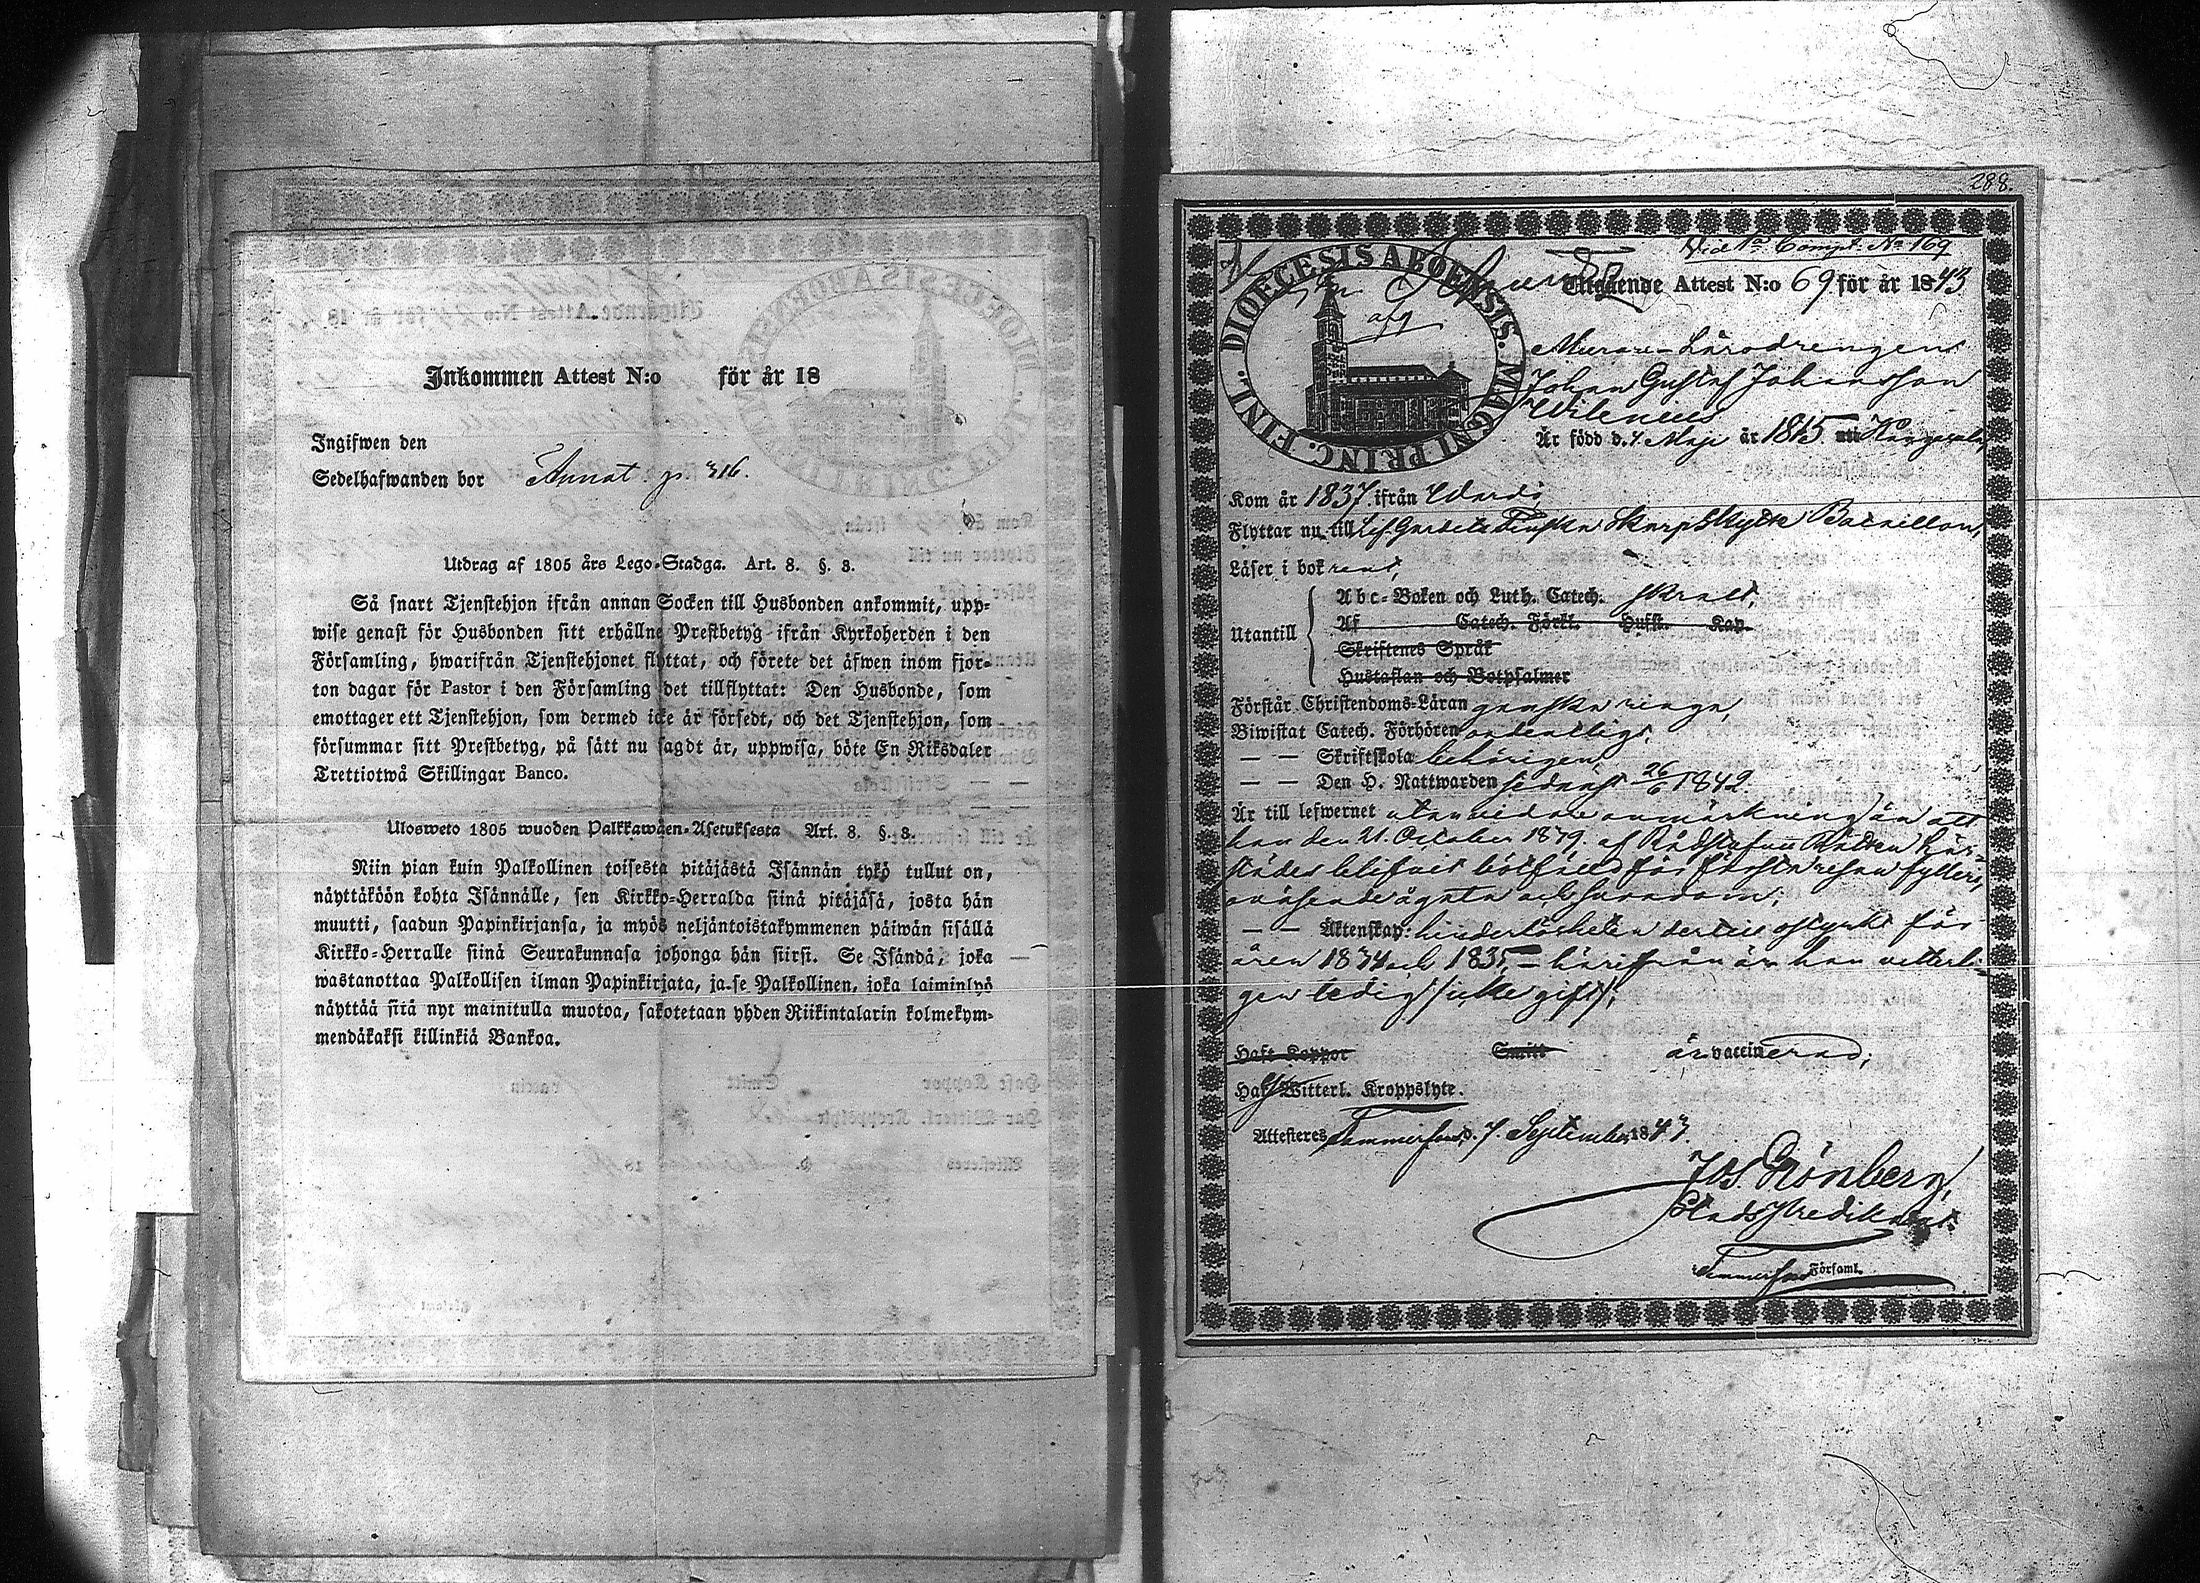 Inkommen Attest N:o för år 18
Ingifwen den
Sedelhafwanden bor Annat p. 316.
Utdrag af 1805 års Lego-Stadga. Art. 8. §. 3.
Så snart Tjenstehjon ifrån annan Socken till Husbonden ankommit, upp-
wise genast för Husbonden sitt erhållne Prestbetyg ifrån Kyrkoherden i den
Församling, hwarifrån Tjenstehjonet flyttat, och förete det äfwen inom fjor-
ton dagar för Pastor i den Församling det tillflyttat: Den Husbonde, som
emottager ett Tjenstehjon, som dermed icke är försedt, och det Tjenstehjon, som
försummar sitt Prestbetyg, på sätt nu sagdt är, uppwisa, böte En Riksdaler
Trettiotwå Skillingar Banco.
Ulosweto 1805 wuoden Palkkawäen-Asetuksesta Art. 8. §. 3.
Niin pian kuin Palkollinen toisesta pitäjästä Isännän tykö tullut on,
näyttäköön kohta Isännälle, sen Kirkko-Herralda siinä pitäjäsä, josta hän
muutti, saadun Papinkirjansa, ja myös neljäntoistakymmenen päiwän sisällä
Kirkko-Herralle siinä Seurakunnasa johonga hän siirsi. Se Isändä, joka
wastanottaa Palkollisen ilman Papinkirjata, ja se Palkollinen, joka laiminlyö
näyttää sitä nyt mainitulla muotoa, sakotetaan yhden Riikintalarin kolmekym-
mendäkaksi killinkiä Bankoa.
288.
Vid 1a Comp. No 169
DIOECESIS ABOENSIS. MAGNI PRINC. FINL.
Utgående Attest N:o 69 för år 1843
afg
Murare-Lärodrengen
Johan Gustaf Johansson
Wilenius
Är född d. 4 Maji år 1815 uti Kangasala,
Kom år 1837 ifrån Wärdö
Flyttar nu till Lif-Gardets Finska Skarpskytte Bataillon,
Läser i bok rent,
Utantill
Abc-Boken och Luth. Catech. swalt,
Af Catech. Förkl. Husst. Kap.
Skriftenes Språk
Hustaflan och Botpsalmer
Förstår Christendoms-Läran ganska ringa,
Biwistat Catech. Förhören ordentligt,
— — Skriftskola behörigen,
— — Den H. Nattwarden sednast 26/6 1842.
Är till lefwernet utan vidare anmärkning än att
han den 21. October 1839. af Rådstufvu Rätten här-
städes blifvit bötfäld för första resan fylleri,
oväsende och svordom;
— — Äktenskap: hinderlösheten dertill ostyrkt för
åren 1834 och 1835, — härifrån är han vetterli-
gen ledig (icke gift);
Haft Koppor Smitt är vaccinerad;
Haf Witterl. Kroppslyte.
Attesteres Tammerfors d. 7. September 1843.
Jos Grönberg,
Stads Predikant.
i Tammerfors Församl.